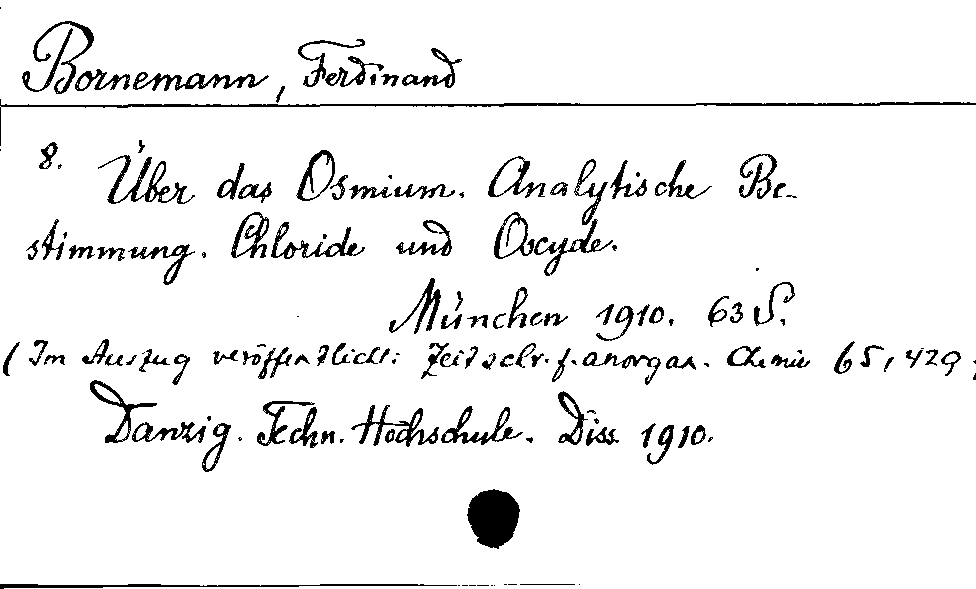 Bornemann, Ferdinand
8. Über das Osmium. Analytische Be-
stimmung. Chloride und Oxyde.
München 1910. 63 S.
(Im Auszug veröffentlicht: Zeitschr. f. anorgan. Chemie 65, 429
Danzig. Techn. Hochschule. Diss. 1910.